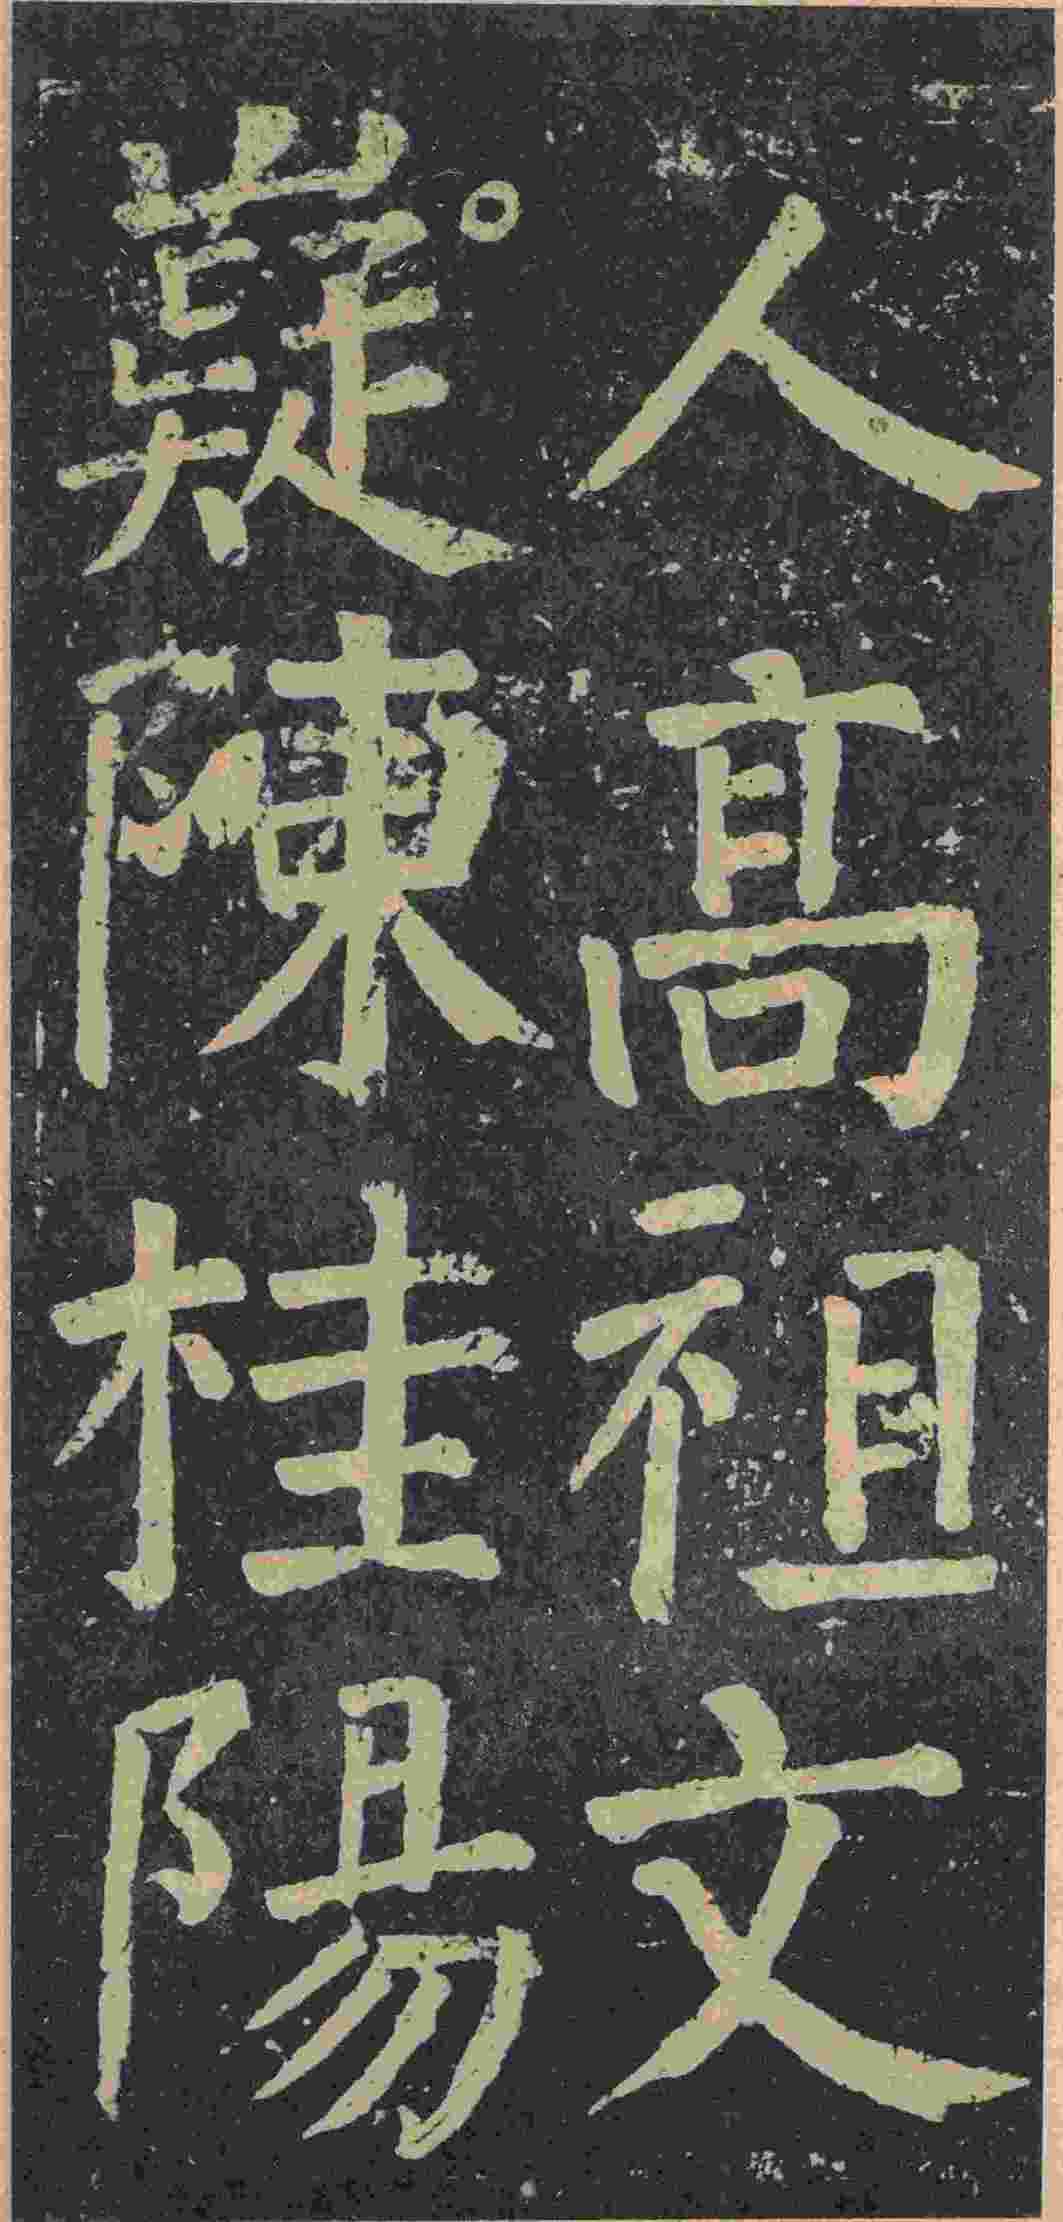 人高祖文
嶷陳桂陽